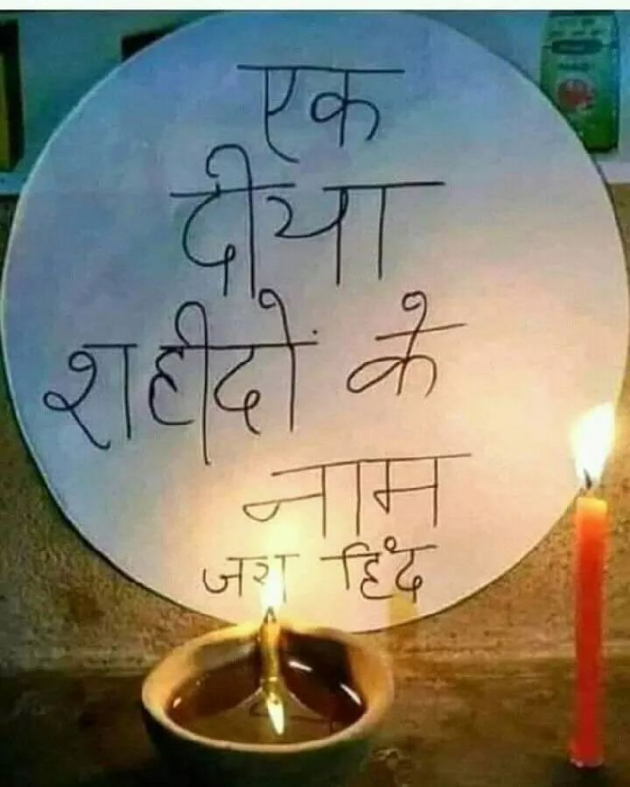 एक
दीया
शहीदों के
नाम
जय हिंद